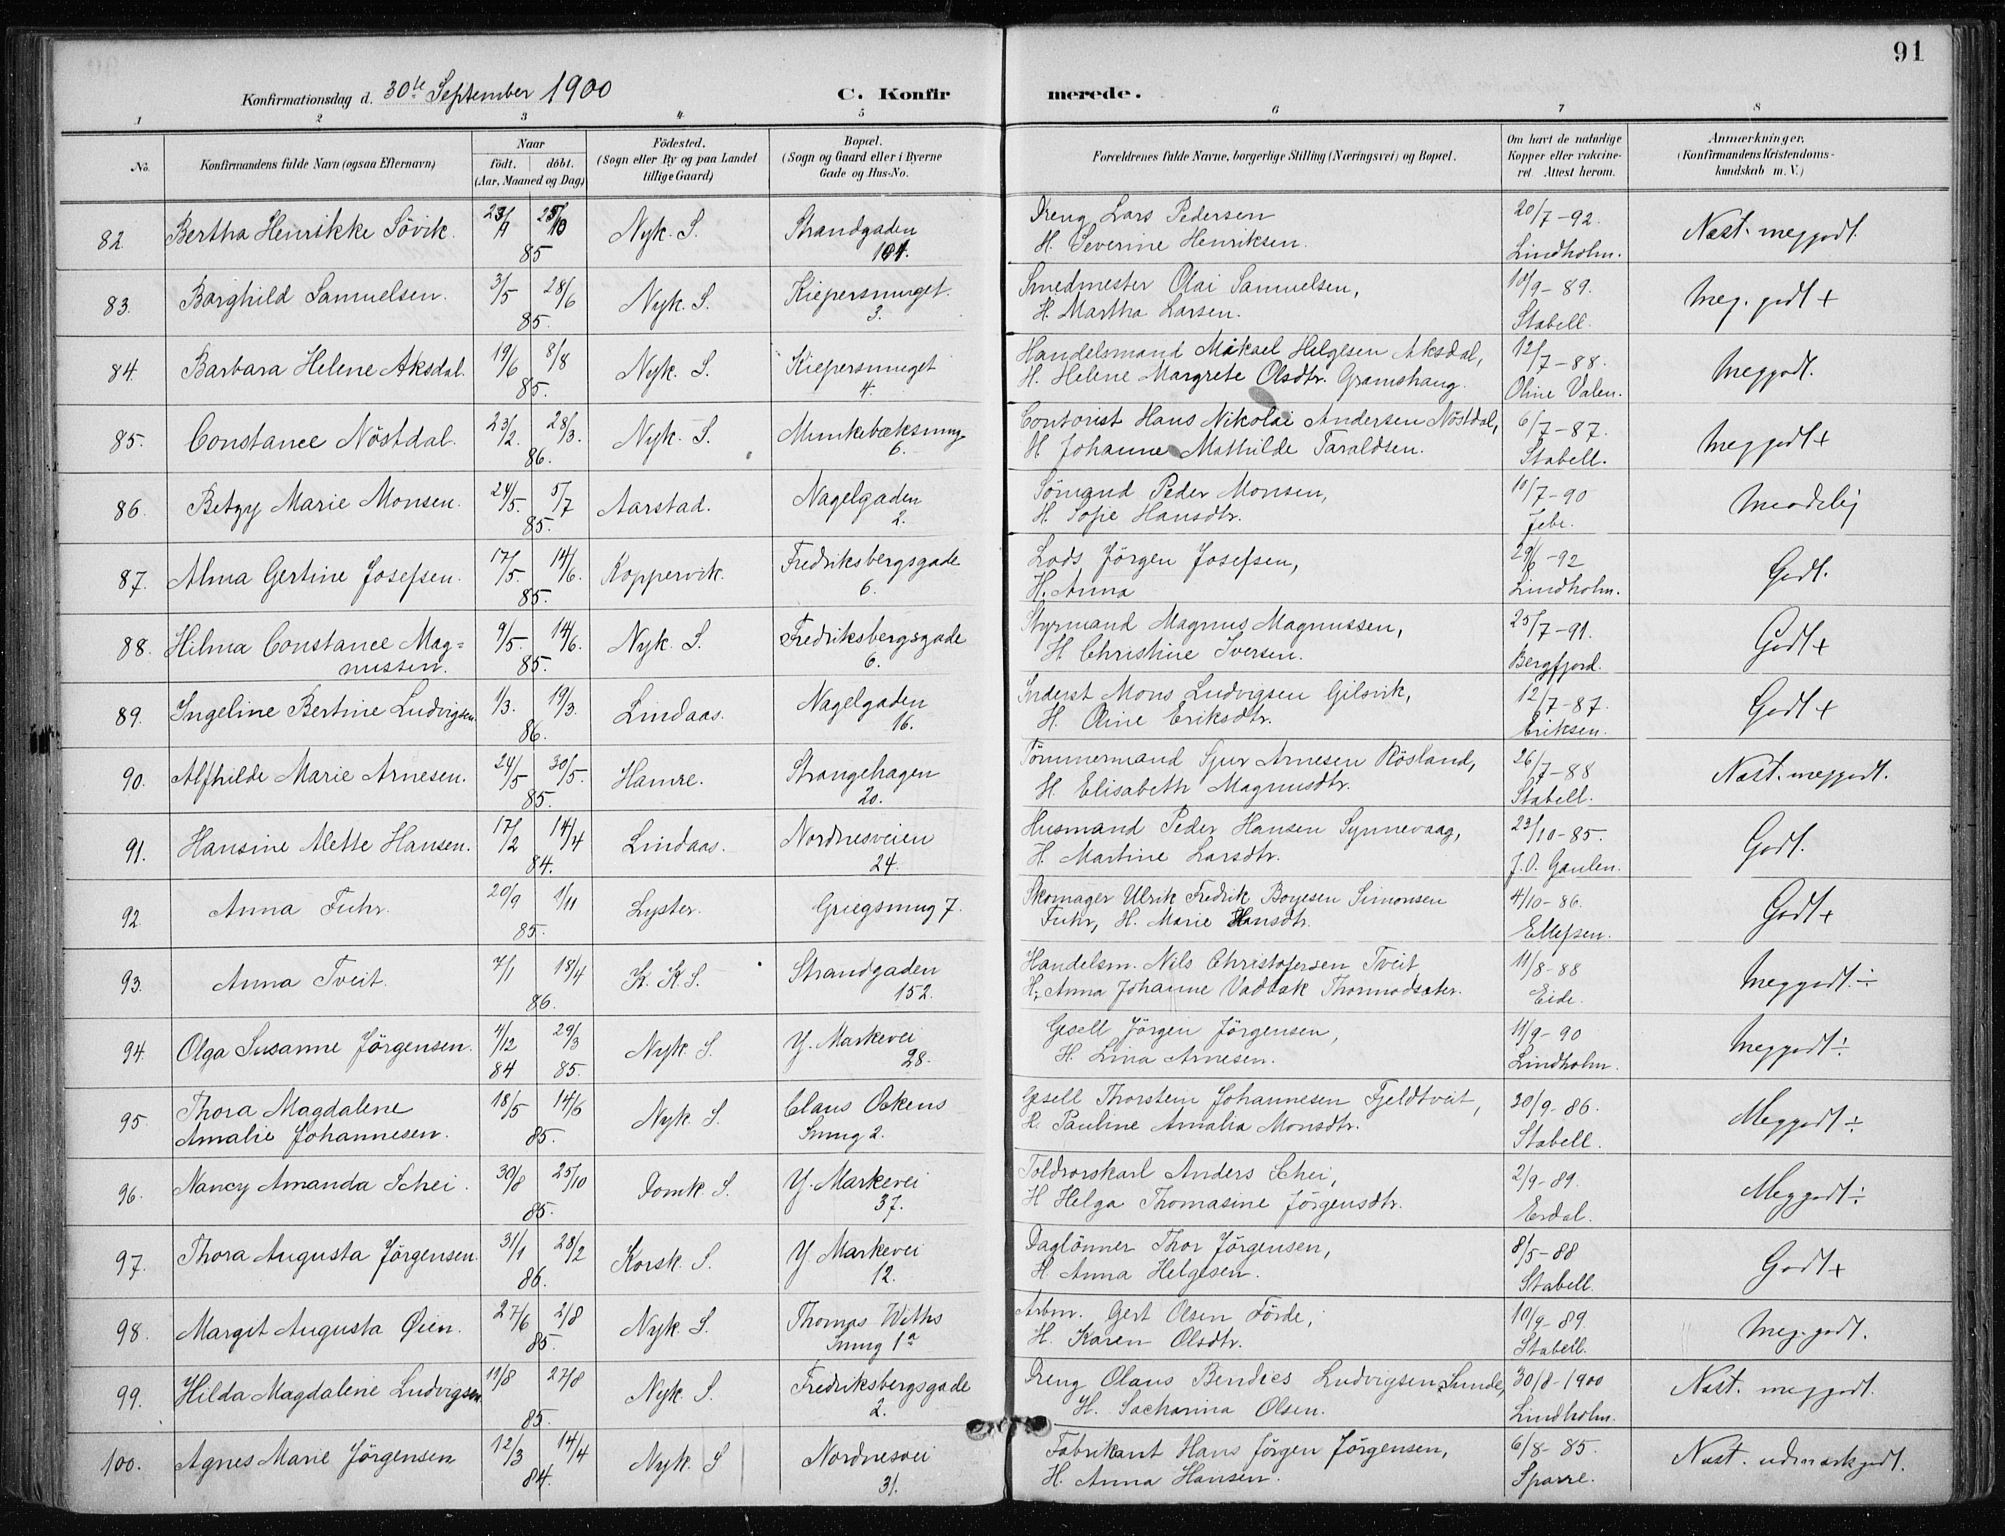 91
Konfirmationsdag d. 30te September 1900 C. Konfirmerede.
1 2 3 4 5 6 7 8
No. Konfirmandens fulde Navn (ogsaa Efternavn) Naar født. døbt. (Aar, Maaned og Dag) Fødested. (Sogn eller By og paa Landet tillige Gaard) Bopæl. (Sogn og Gaard eller i Byerne Gade og Hus-No. Forældrenes fulde Navne, borgerlige Stilling (Næringsvei) og Bopæl. Om havt de naturlige Kopper eller vakcineret. Attest herom. Anmærkninger. (Konfirmandens Kristendomskundskab m. V.)
82. Bertha Henrikke Sövik. 23/9 25/10 85 Nyk. S. Strandgaden 101. Dreng Lars Pedersen 20/7-92.
H. Severine Henriksen. Lindholm. Næst. meggodt.
83. Borghild Samuelsen. 3/5 28/6 85. Nyk. S. Kiepersmuget. 3. Smedmester Olai Samuelsen, 10/9-89.
H. Martha Larsen. Stabell. Meg. godt +
84. Barbara Helene Aksdal. 19/6 8/8 85. Nyk. S. Kiepersmuget 4. Handelsmand Mikael Helgesen Aksdal, 12/7-88.
H. Helene Margrete Olsdtr. Gramshaug. Oline Valen. Meggodt.
85. Constance Nöstdal. 23/2. 28/3. 86. Nyk. S. Munkebæksmug 6. Contorist Hans Nikolai Andersen Nöstdal, 6/7-87.
H Johanne Mathilde Taraldsen. Stabell. Meggodt +
86. Betzy Marie Monsen. 24/5. 5/7 85. Aarstad. Nagelgaden 2. Sömand Peder Monsen, 11/7-90
H. Sofie Hansdtr. Jebe. Maadelig
87. Alma Gertine Josefsen. 17/5. 14/6. 85. Koppervik. Fredriksbergsgade 6. Lods Jörgen Josefsen, 29/6-92
H. Anna Lindholm. Godt.
88. Hilma Constance Mag= 9/5. 14/6. 85. Nyk. S. Fredriksbergsgade 6. Styrmand Magnus Magnussen, 25/7-91.
nussen. H Christine Iversen. Bergfjord. Godt +
89. Ingeline Bertine Ludvigsen 1/3. 19/3. 86. Lindaas. Nagelgaden 16. Inderst Mons Ludvigsen Gilsvik, 12/7-87.
H. Oline Eriksdtr. Eriksen. Godt +
90. Alfhilde Marie Arnesen. 24/5 30/5. 85. Hamre. Strangehagen 20. Tömmermand Sjur Arnesen Rösland, 26/7-88
H. Elisabeth Magnusdtr. Stabell. Næst. meggodt.
91. Hansine Alette Hansen. 17/2 14/4 84. Lindaas. Nordnesveien 24. Husmand Peder Hansen Synnevaag, 23/10-85.
H. Martine Larsdtr. J. O. Gaulen. Godt.
92. Anna Fuhr. 20/9 1/11 85. Lyster. Griegsmug 7. Skomager Ulrik Fredrik Boyesen Simonsen 4/10-86.
Fuhr, H. Marie Hansdtr. Ellefsen. Godt +
93. Anna Tveit. 7/1 18/4 86. K. K. S. Strandgaden 152. Handelsm. Nils Christofersen Tveit 11/8-88
H. Anna Johanne Eide. Meggodt. ÷
94. Olga Susanne Jörgensen. 4/12 84 29/3 85. Nyk. S. Y. Markevei 28. Gesell Jörgen Jörgensen, 11/9-90
H. Lina Arnesen. Lindholm. Meggodt ÷
95. Thora Magdalene 18/5 14/6 85. Nyk. S Claus Ockens Smug 2. Gesell Thorstein Johannesen Fjeldtveit, 20/9-86.
Amalie Johannesen. H. Pauline Amalia Monsdtr. Stabell. Meggodt ÷
96. Nancy Amanda Schei. 30/8 25/10 85. Domk. S. Y. Markevei 37. Toldrorskarl Anders Schei, 2/9-89.
H Helga Thomasine Jörgensdtr. Erdal. Meggodt ÷
97. Thora Augusta Jörgensen. 31/1 28/2 86. Korsk. S. Y. Markevei 12. Daglönner Thor Jörgensen, 8/5-88
H Anna Helgesen. Stabell. Godt +
98. Margit Augusta Øien. 27/6 2/8 85. Nyk. S. Thomas Withs Smug 1a Arbm. Gert Olsen Förde, 10/9-89.
H. Karen Olsdtr. Stabell. Meg. godt.
99. Hilda Magdalene Ludvigsen 11/8 27/8 85. Nyk. S. Fredriksbergsgade 2. Dreng Olaus Bendics Ludvigsen Sunde, 30/8-1900
H. Sacharina Olsen. Lindholm. Næst. meggodt.
100. Agnes Marie Jörgensen 12/3 14/4 84. Nyk. S Nordnesvei 31. Fabrikant Hans Jörgen Jörgensen, 6/8-85.
H. Anna Hansen. Sparre. Næst. udmærkgodt.